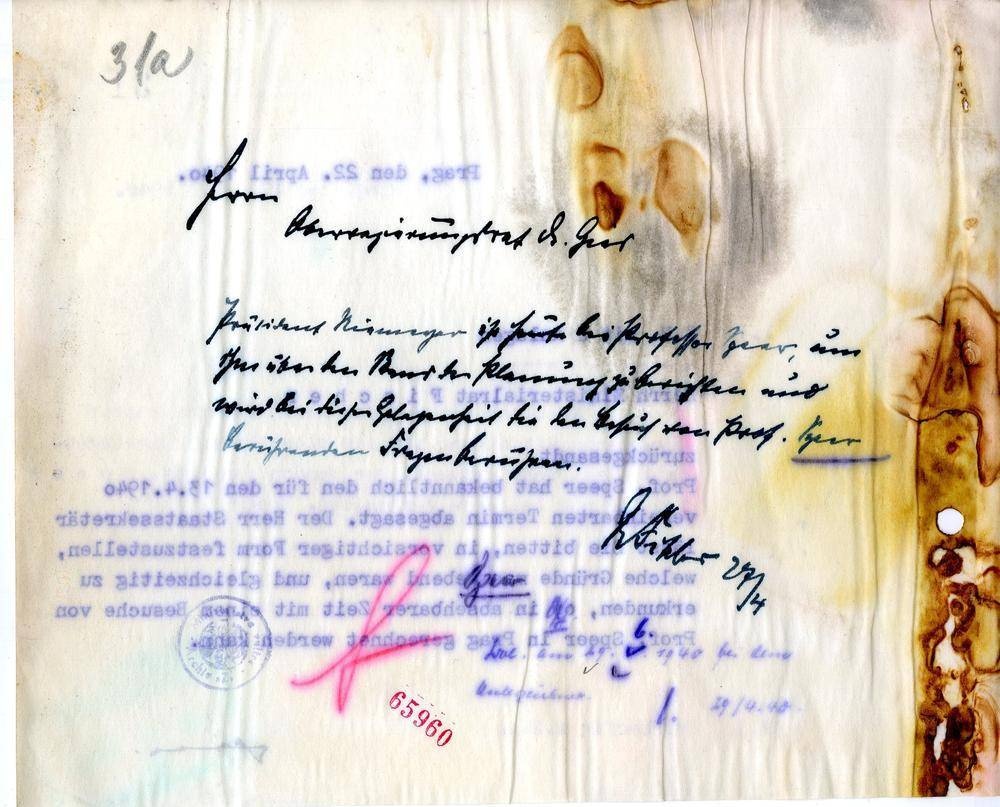 3/a
Prag, den 22. April 1940.
Herrn
Oberregierungsrat Dr. Gies
Präsident Niemeyer ist heute bei Professor Speer, um
ihm über den Stand der Planung zu berichten und
wird bei dieser Gelegenheit die den Besuch von Prof. Speer
berührenden Fragen berühren.
27/4
Herrn Ministerialrat F i s c h e r
zurückgesandt.
Prof. Speer hat bekanntlich den für den 13.4.1940
vereinbarten Termin abgesagt. Der Herr Staatssekretär
bitten, in vorsichtiger Form festzustellen,
welche Gründe massgebend waren, und gleichzeitig zu
erkunden, ob in absehbarer Zeit mit einem Besuche von
Prof. Speer in Prag gerechnet werden kann.
am 29. 6. 1940 bei dem
29/4.40.
65960